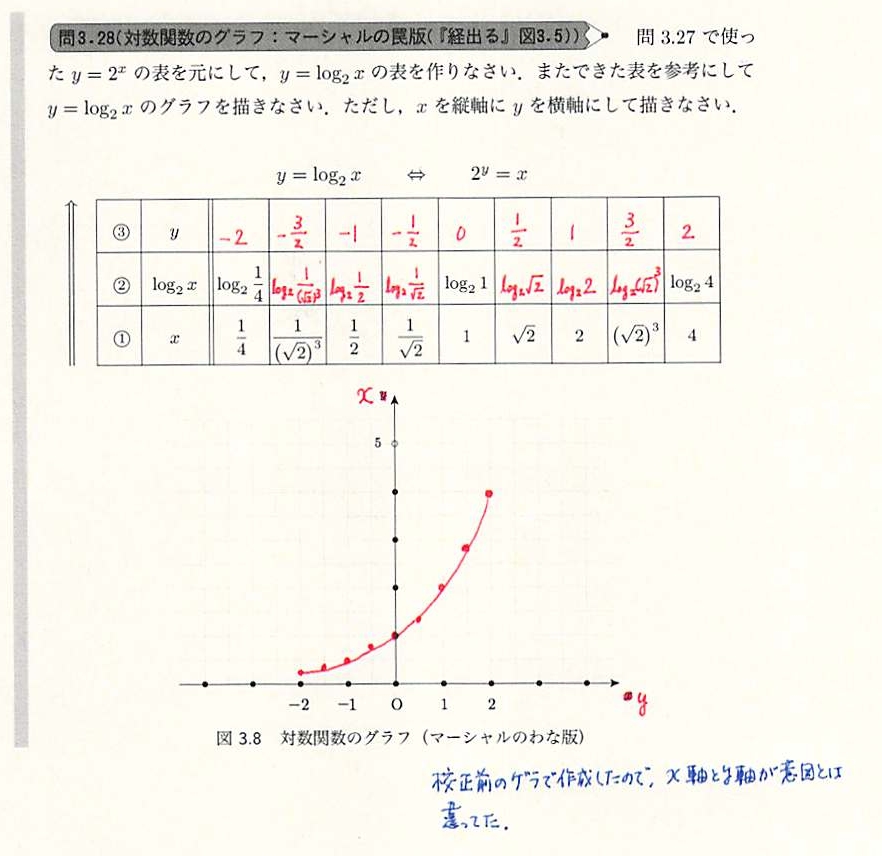 問3.28(対数関数のグラフ：マーシャルの罠版(『経出る』図3.5)) 問 3.27 で使っ
た y = 2^x の表を元にして，y = log₂ x の表を作りなさい．またできた表を参考にして
y = log₂ x のグラフを描きなさい．ただし，x を縦軸に y を横軸にして描きなさい．
y = log₂ x ⇔ 2^y = x
③ y −2 −3/2 −1 −1/2 0 1/2 1 3/2 2
② log₂ x log₂ 1/4 log₂ 1/(√2)³ log₂ 1/2 log₂ 1/√2 log₂ 1 log₂ √2 log₂ 2 log₂ (√2)³ log₂ 4
① x 1/4 1/(√2)³ 1/2 1/√2 1 √2 2 (√2)³ 4
x
5
−2 −1 O 1 2
y
図 3.8 対数関数のグラフ（マーシャルのわな版）
校正前のゲラで作成したので，x軸とy軸が意図とは
違ってた．